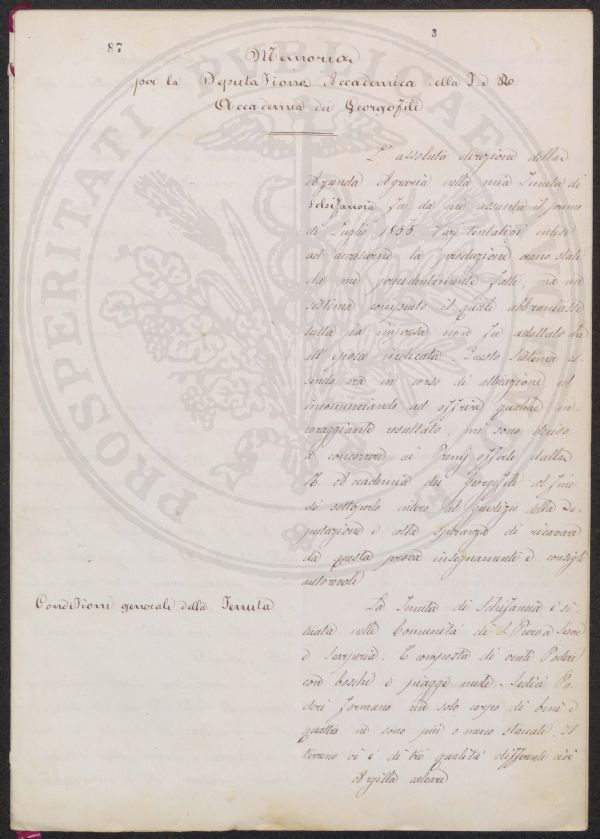 87
3
Memoria
per la Deputazione Accademica della I. e R.
Accademia dei Georgofili
L' assoluta direzione della
Azienda Agraria nella mia Tenuta di
Schifanoia fu da me assunta il primo
di Luglio 1853. Varj tentativi intesi
ad accrescerne la produzione erano stati
da me precedentemente fatti, ma un
sistema compiuto il quale abbracciasse
tutta la impresa non fu adottato che
all' epoca indicata. Questo sistema es
sendo ora in corso di attivazione ed
incominciando ad offrire qualche in-
coraggiante resultato, mi sono deciso
a concorrere ai Premj offerti dalla
R. Accademia dei Georgofili al fine
di sottoporlo intero al giudizio della De-
putazione e colla speranza di ricavare
da questa prova insegnamenti e consigli
autorevoli
Condizioni generale della Tenuta
La Tenuta di Schifanoia è si-
tuata nelle Comunità di S. Piero a Sieve
e Scarperia. È composta di venti Poderi
con boschi e piagge nude. Sedici Po-
deri formano un solo corpo di beni e
quattro ne sono più o meno staccati. Il
terreno vi è di tre qualità differenti cioè
Argilla calcare
PROSPERITATI PUBLICAE